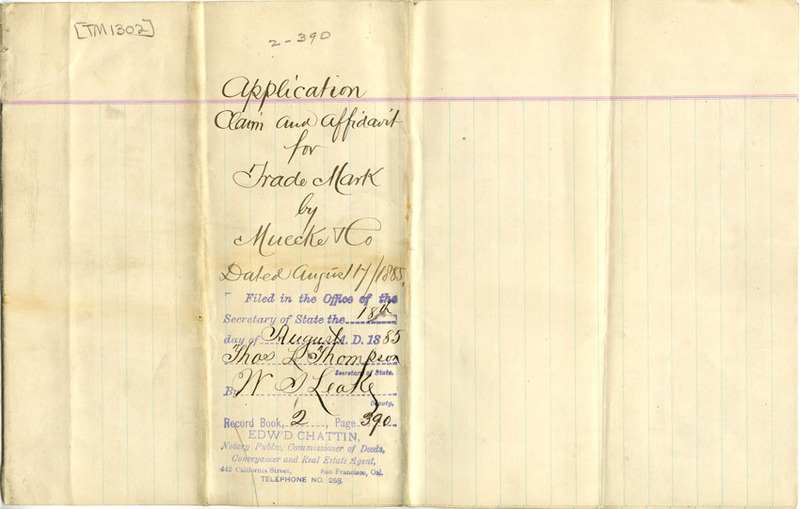 [TM1302]
2-390
Application
Claim and Affidavit
for
Trade Mark
by
Muecke & Co
Dated August 17/1885
Filed in the Office of the
Secretary of State the 18th
day of August A. D. 1885
Thos L Thompson
Secretary of State.
By W S Leake
Deputy.
Record Book, 2, Page 390
EDW'D CHATTIN,
Notary Public, Commissioner of Deeds,
Conveyancer and Real Estate Agent,
442 California Street, San Francisco, Cal.
TELEPHONE NO. 258.